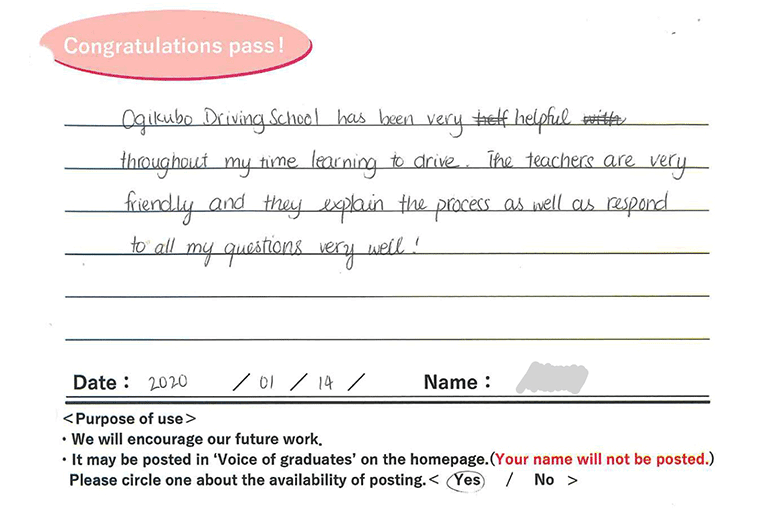 Congratulations pass!
Ogikubo Driving School has been very helf helpful with
throughout my time learning to drive. The teachers are very
friendly and they explain the process as well as respond
to all my questions very well!
Date : 2020 / 01 / 14 / Name :
<Purpose of use>
・We will encourage our future work.
・It may be posted in ‘Voice of graduates’ on the homepage.(Your name will not be posted.)
Please circle one about the availability of posting.< Yes / No >